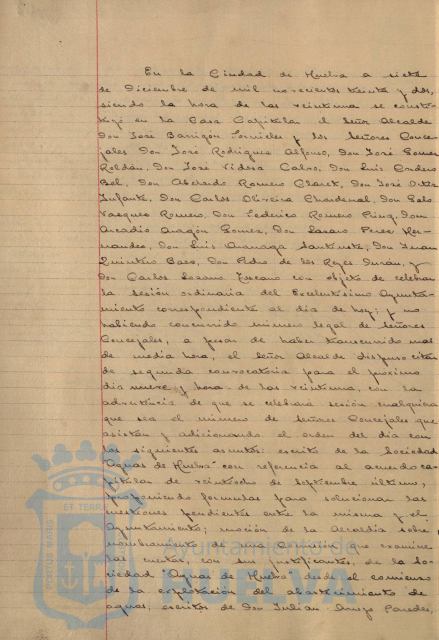 En la Ciudad de Huelva a siete
de Diciembre de mil novecientos treinta y dos,
siendo la hora de las veintiuna se consti-
tuyó en la Casa Capitular el Señor Alcalde
Don José Barrigón Fornieles y los Señores Conce-
jales Don José Rodriguez Alfonso, Don José Gomez
Roldán, Don José Videra Calvo, Don Luis Cordero
Bel, Don Abelardo Romero Claret, Don José Ortiz
Infante, Don Carlos Oliveira Chardenal, Don
Vazquez Romero, Don Federico Romero Don
Arcadio Aragón Gomez, Don Lazaro Perez Her-
nandez, Don Luis Don Juan
Quintero Baez, Don Pedro de los Reyes Durán, y
Don Carlos Lozano con objeto de celebrar
la sesión ordinaria del Excelentísimo Ayunta-
miento correspondiente al dia de hoy; y no
habiendo concurrido número legal de señores
Concejales, a pesar de haber transcurrido mas
de media hora, el Señor Alcalde dispuso citar
de segunda convocatoria para el próximo
dia nueve, y hora de las veintiuna, con la
advertencia de que se celebrará sesión cualquiera
que sea el número de Señores Concejales que
asistan y adicionando el orden del dia con
los siguientes asuntos: escrito de la Sociedad
"Aguas de Huelva" con referencia al acuerdo ca-
pitular de veintiocho de Septiembre último,
proponiendo formulas para solucionar las
cuestiones pendientes entre la misma y el
Ayuntamiento; moción de la Alcaldia sobre
nombramiento de una Comisión que examine
las cuentas, con sus justificantes, de la So-
ciedad "Aguas de Huelva" desde el comienzo
de la explotación del abastecimiento de
aguas; escritos de Don Julián Paredes,
Ayuntamiento de
HUELVA